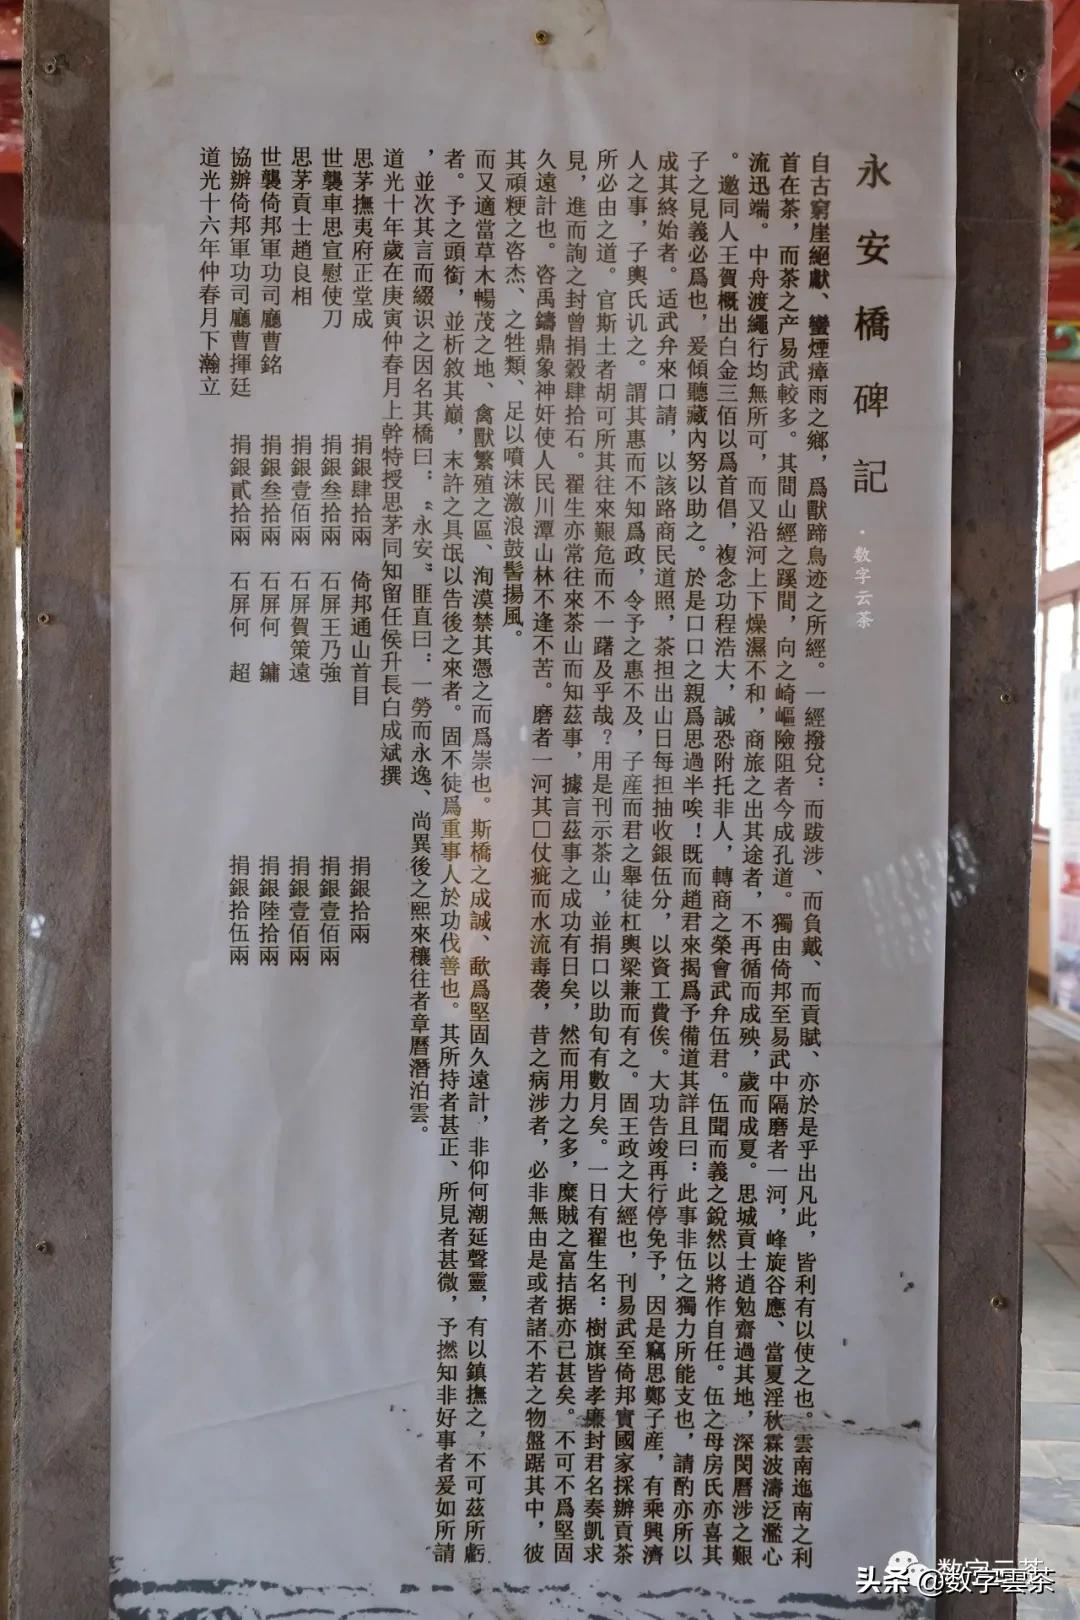 永安橋碑記
自古窮崖絕獻、蠻煙瘴雨之鄉，爲獸蹄鳥迹之所經。一經撥兌：而跋涉、而負戴、而貢賦、亦於是乎出凡此，皆利有以使之也。雲南迤南之利
首在茶，而茶之产易武較多。其間山經之蹊間，向之崎嶇險阻者今成孔道。獨由倚邦至易武中隔磨者一河，峰旋谷應、當夏淫秋霖波濤泛濫心
流迅端。中舟渡繩行均無所可，而又沿河上下燥濕不和，商旅之出其途者，不再循而成殃，歲而成夏。思城貢士逍勉齋過其地，深閔曆涉之艱
。邀同人王賀概出白金三佰以爲首倡，複念功程浩大，誠恐附托非人，轉商之榮會武弁伍君。伍聞而義之銳然以將作自任。伍之母房氏亦喜其
子之見義必爲也，爰傾聽藏內努以助之。於是口口之親爲思過半唉！既而趙君來揭爲予備道其詳且曰：此事非伍之獨力所能支也，請酌亦所以
成其終始者。适武弁來口請，以該路商民道照，茶担出山日每担抽收銀伍分，以資工費俟。大功告竣再行停免予，因是竊思鄭子産，有乘興濟
人之事，子輿氏讥之。謂其惠而不知爲政，令予之惠不及，子産而君之舉徒杠輿梁兼而有之。固王政之大經也，刊易武至倚邦實國家採辦貢茶
所必由之道。官斯土者胡可所其往來艱危而不一躇及乎哉？用是刊示茶山，並捐口以助旬有數月矣。一日有翟生名：樹旗皆孝廉封君名奏凱求
見，進而詢之封曾捐穀肆拾石。翟生亦常往來茶山而知茲事，據言茲事之成功有日矣，然而用力之多，糜賊之富拮据亦已甚矣。不可不爲堅固
久遠計也。咨禹鑄鼎象神奸使人民川潭山林不逢不苦。磨者一河其□仗疵而水流毒袭，昔之病涉者，必非無由是或者諸不若之物盤踞其中，彼
其頑粳之咨杰、之牲類、足以噴沫激浪鼓髻揚風。
而又適當草木暢茂之地、禽獸繁殖之區、洵漠禁其憑之而爲崇也。斯橋之成誠、歃爲堅固久遠計，非仰何潮延聲靈，有以鎮撫之，不可茲所虧
者。予之頭銜，並析敘其巔，末許之具氓以告後之來者。固不徒爲重事人於功伐善也。其所持者甚正、所見者甚微，予撚知非好事者爰如所請
，並次其言而綴识之因名其橋曰：“永安”匪直曰：一勞而永逸、尚異後之熙來穰往者章曆潛泊雲。
道光十年歲在庚寅仲春月上幹特授思茅同知留任侯升長白成斌撰
思茅撫夷府正堂成 捐銀肆拾兩 倚邦通山首目 捐銀拾兩
世襲車思宣慰使刀 捐銀叁拾兩 石屏王乃強 捐銀壹佰兩
思茅貢士趙良相 捐銀壹佰兩 石屏賀策遠 捐銀壹佰兩
世襲倚邦軍功司廳曹銘 捐銀叁拾兩 石屏何 鏞 捐銀陸拾兩
協辦倚邦軍功司廳曹揮廷 捐銀貳拾兩 石屏何 超 捐銀拾伍兩
道光十六年仲春月下瀚立
·数字云茶
数字云茶
头条 @数字雲茶